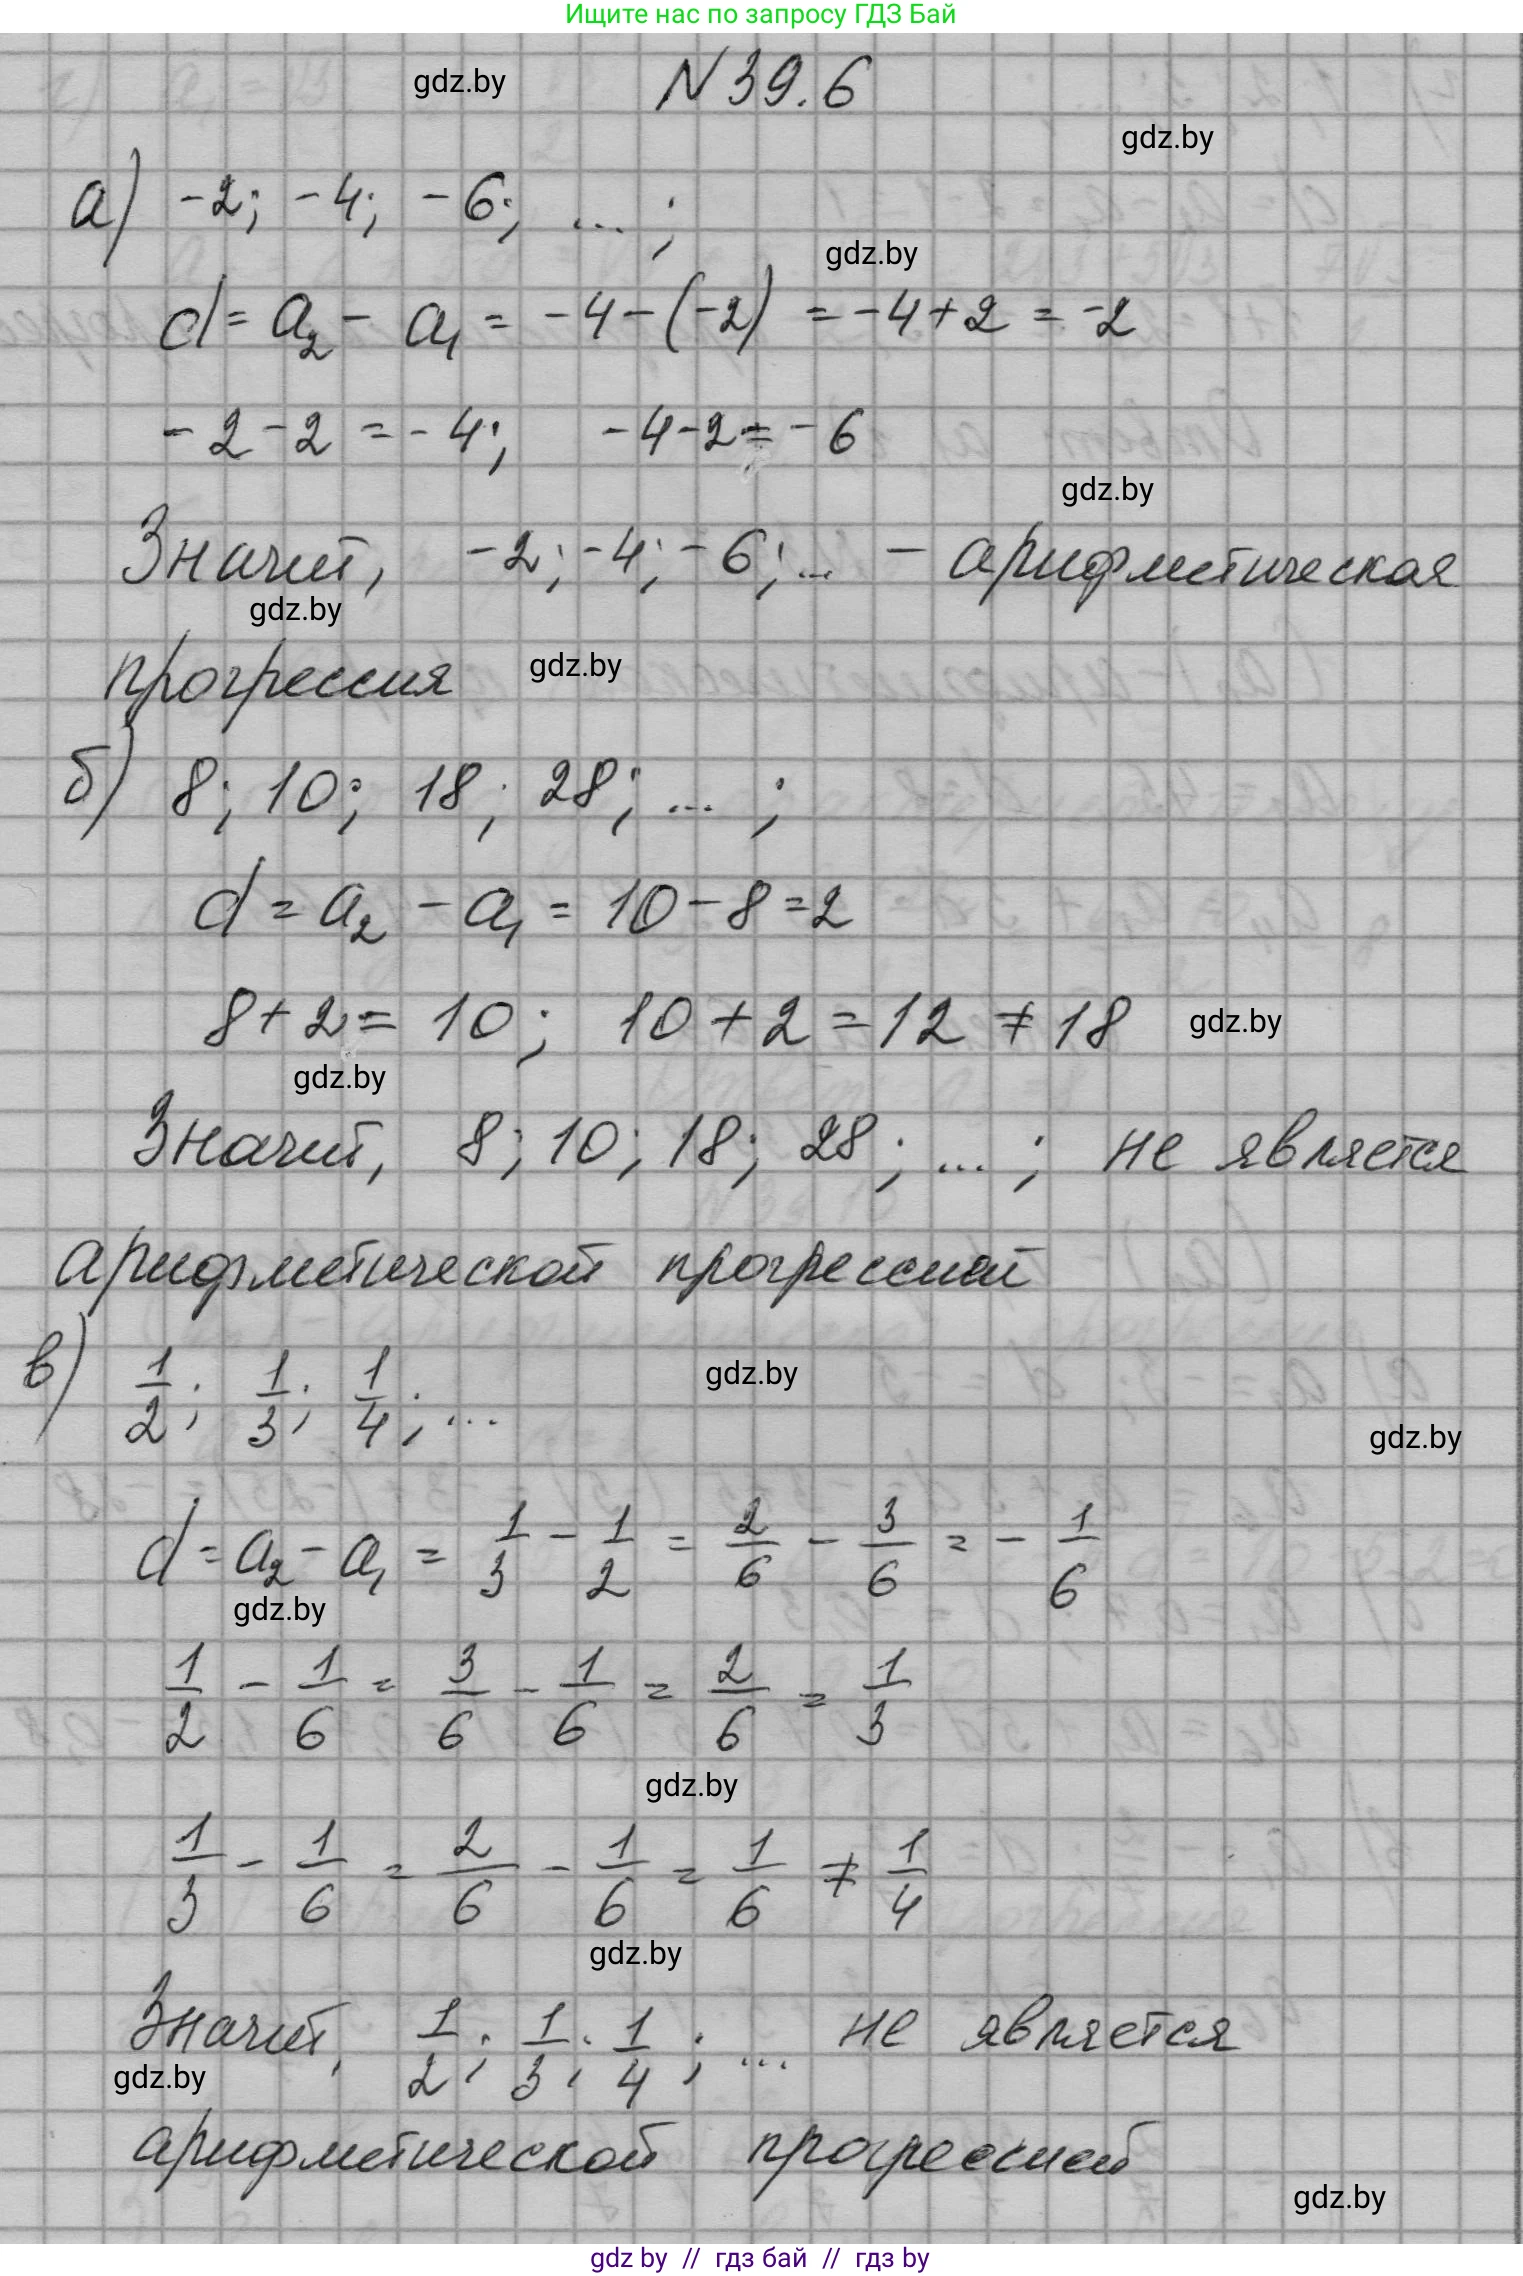 Ищите нас по запросу ГДЗ Бай
gdz.by
N 39.6
gdz.by
а) -2; -4; -6; ... ;
gdz.by
d = a₂ - a₁ = -4-(-2) = -4+2 = -2
-2-2 = -4; -4-2 = -6
gdz.by
Значит, -2; -4; -6; ... - арифметическая
gdz.by
прогрессия
gdz.by
б) 8; 10; 18; 28; ... ;
d = a₂ - a₁ = 10-8 = 2
8+2 = 10; 10+2 = 12 ≠ 18
gdz.by
gdz.by
Значит, 8; 10; 18; 28; ... ; не является
арифметической прогрессией
в) 1/2; 1/3; 1/4; ...
gdz.by
gdz.by
d = a₂ - a₁ = 1/3 - 1/2 = 2/6 - 3/6 = - 1/6
gdz.by
1/2 - 1/6 = 3/6 - 1/6 = 2/6 = 1/3
gdz.by
1/3 - 1/6 = 2/6 - 1/6 = 1/6 ≠ 1/4
gdz.by
Значит, 1/2; 1/3; 1/4; ... не является
gdz.by
арифметической прогрессией
gdz.by
gdz by // гдз бай // гдз by